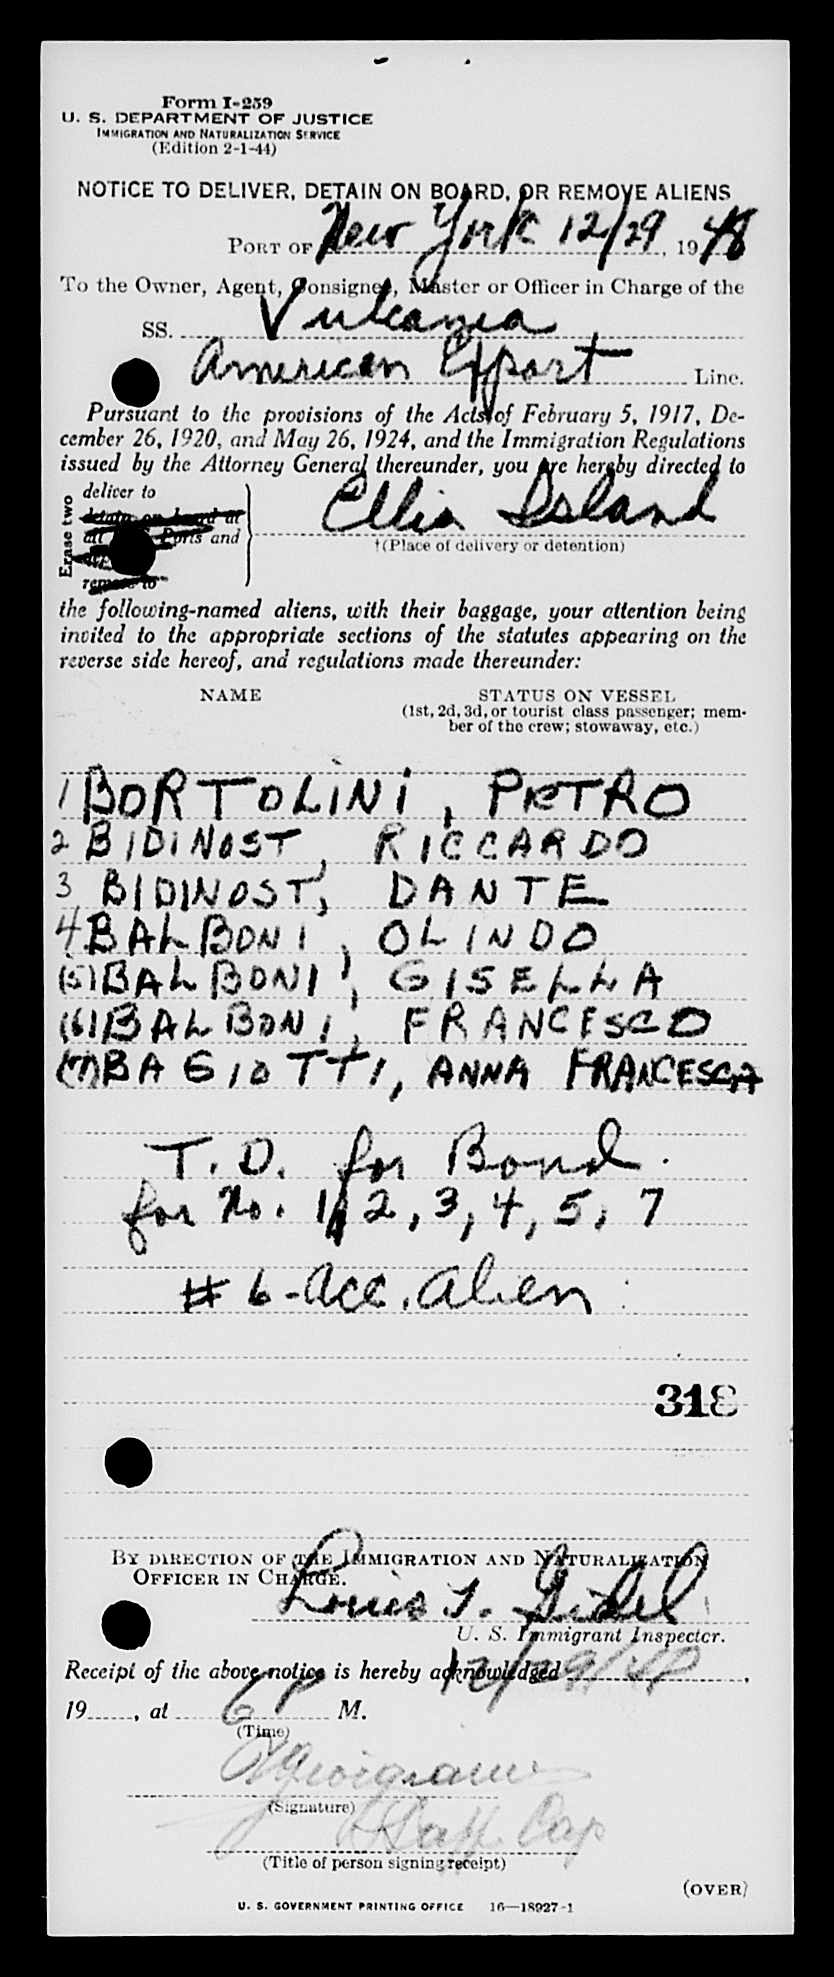 Form I-259
U. S. DEPARTMENT OF JUSTICE
IMMIGRATION AND NATURALIZATION SERVICE
(Edition 2-1-44)
NOTICE TO DELIVER, DETAIN ON BOARD, OR REMOVE ALIENS
PORT OF New York 12/29, 1948
To the Owner, Agent, Consignee, Master or Officer in Charge of the
SS. Vulcania
American Export Line.
Pursuant to the provisions of the Acts of February 5, 1917, De-
cember 26, 1920, and May 26, 1924, and the Immigration Regulations
issued by the Attorney General thereunder, you are hereby directed to
Erase two
deliver to
detain on board at
all Ports and
remove to
Ellis Island
†(Place of delivery or detention)
the following-named aliens, with their baggage, your attention being
invited to the appropriate sections of the statutes appearing on the
reverse side hereof, and regulations made thereunder:
NAME STATUS ON VESSEL
(1st, 2d, 3d, or tourist class passenger; mem-
ber of the crew; stowaway, etc.)
1 BORTOLINI, PIETRO
2 BIDINOST, RICCARDO
3 BIDINOST, DANTE
4 BALBONI, OLINDO
(5) BALBONI, GISELLA
(6) BALBONI, FRANCESCO
(7) BAGIOTTI, ANNA FRANCESCA
T. D. for Bond.
for No. 1, 2, 3, 4, 5, 7
# 6 - Acc. Alien
318
BY DIRECTION OF THE IMMIGRATION AND NATURALIZATION
OFFICER IN CHARGE.
Louis
U. S. Immigrant Inspector.
Receipt of the above notice is hereby acknowledged 12/29/48,
19, at 6 P M.
(Time)
(Signature)
Staff Cap
(Title of person signing receipt)
(OVER)
U. S. GOVERNMENT PRINTING OFFICE 16—18927-1